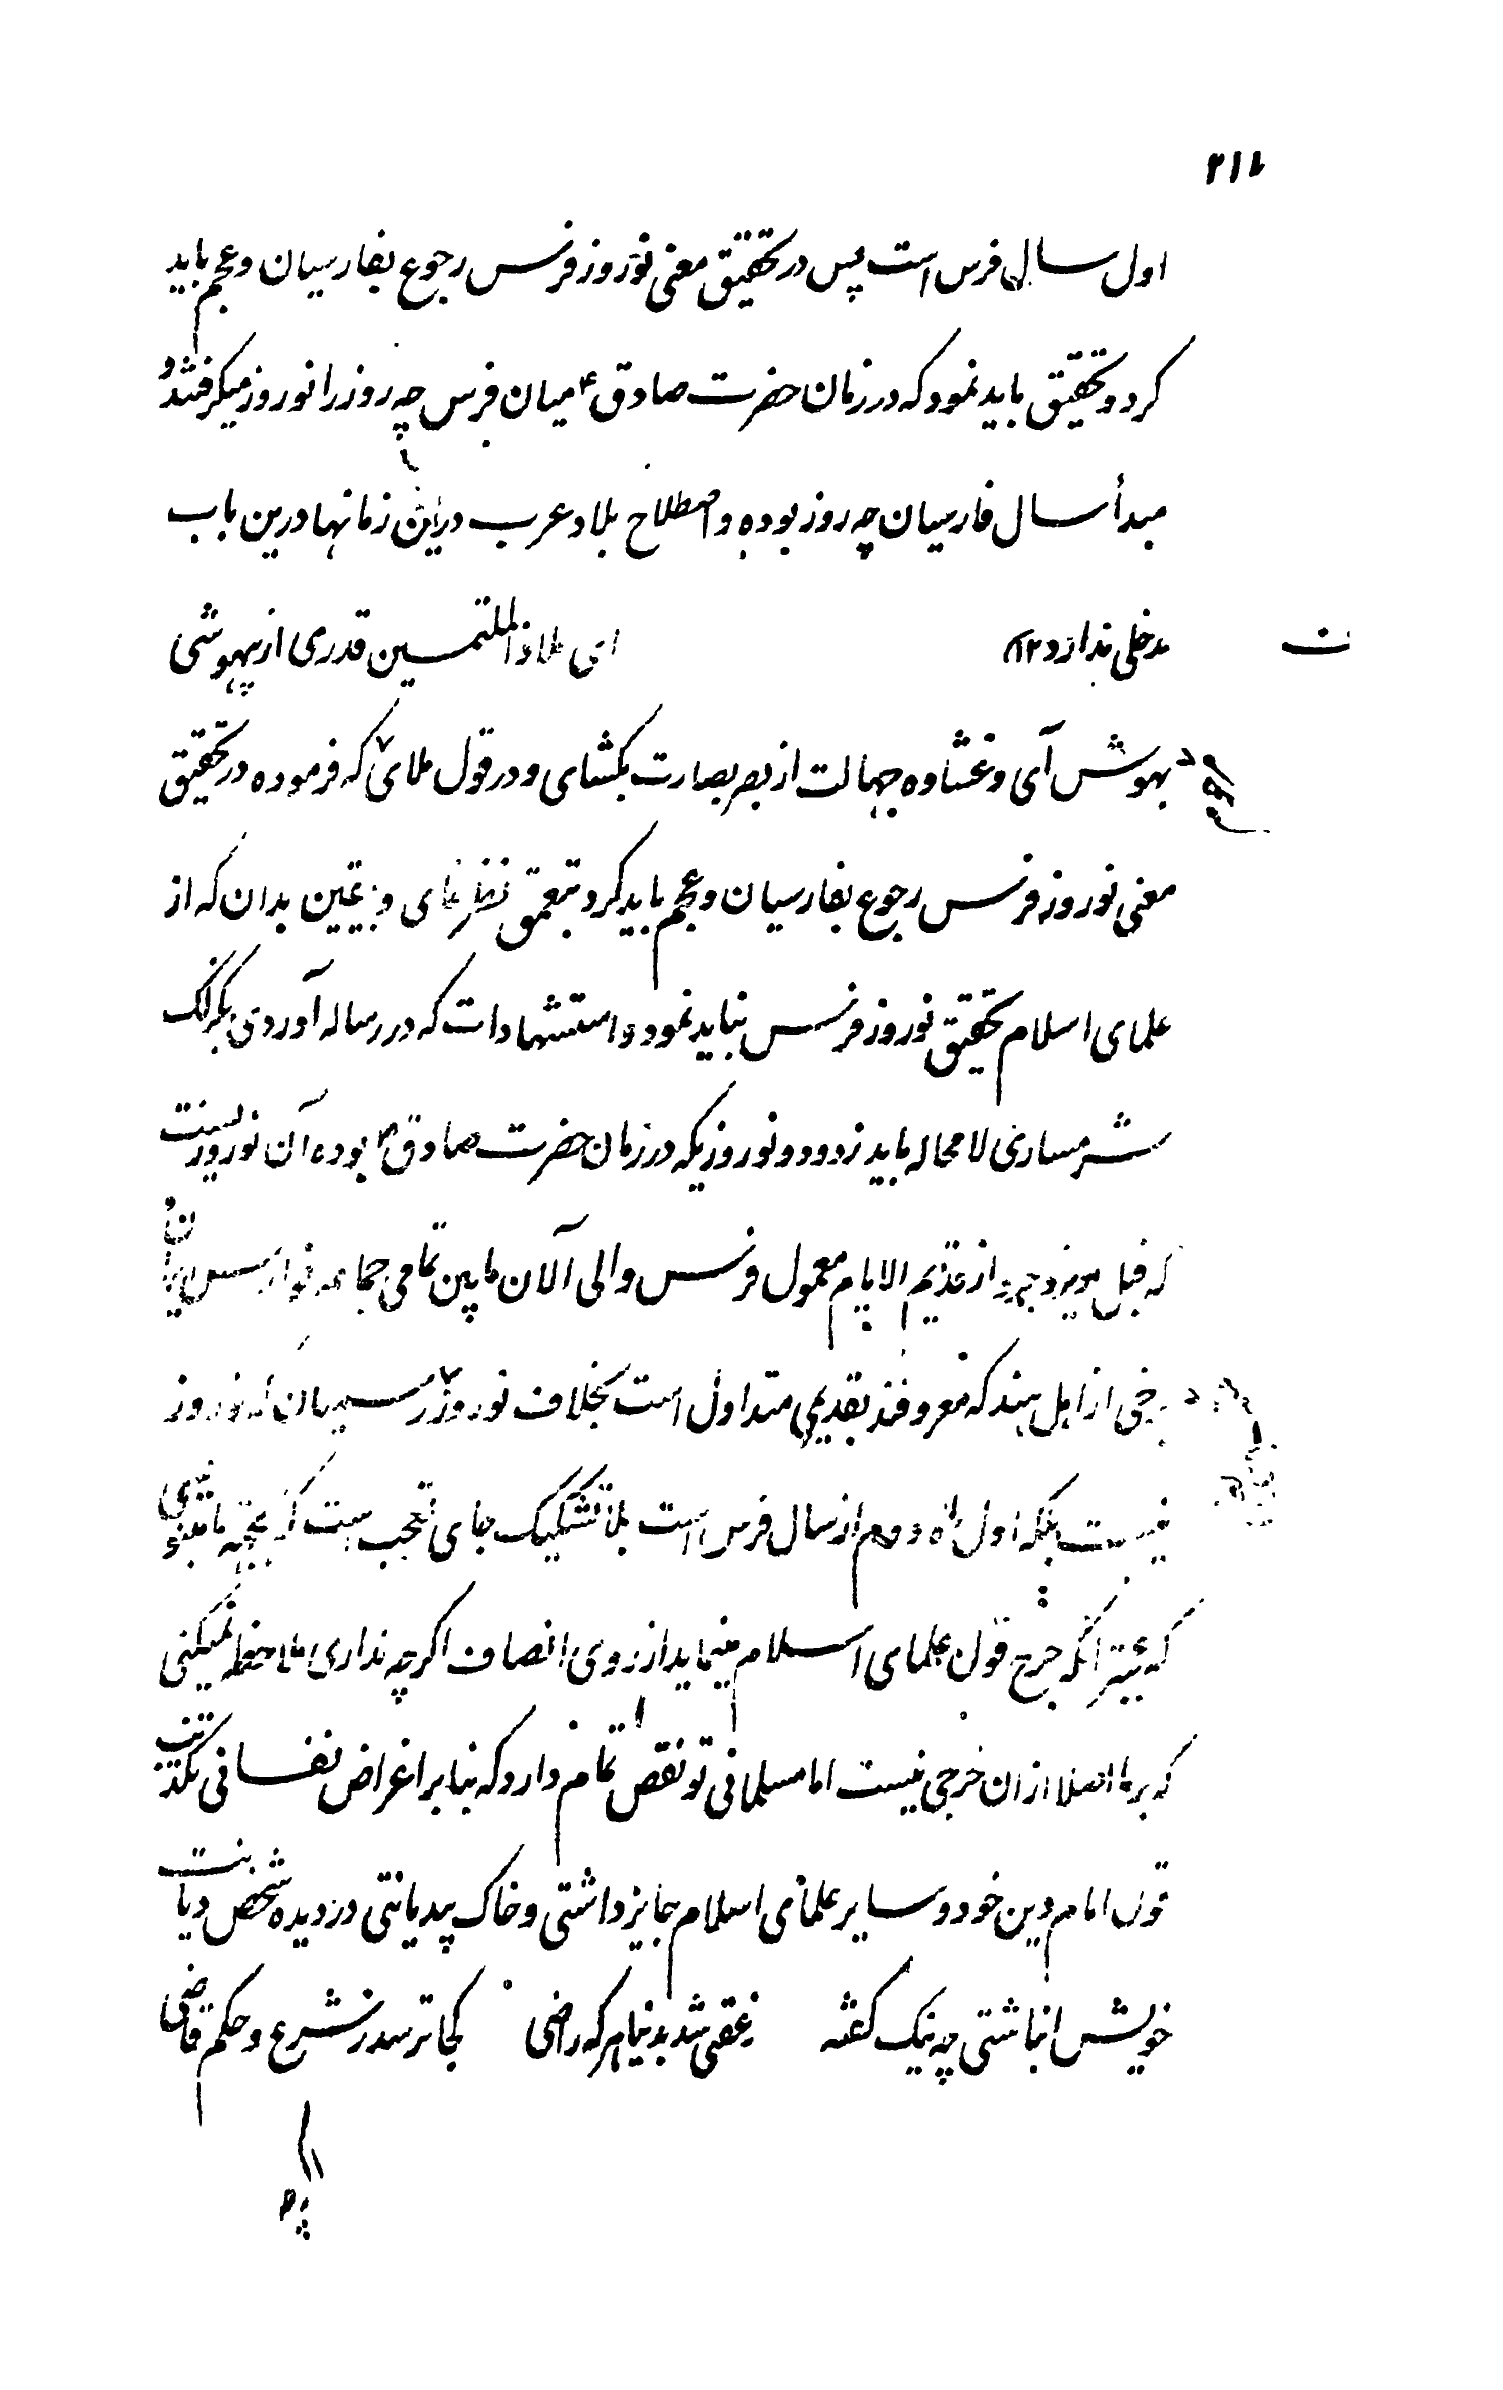 ۲۱۲
اول سال فرس است پس در تحقیق معنی نوروز فرس رجوع بفارسیان و عجم باید
کرد و تحقیق باید نمود که در زمان حضرت صادق ع میان فرس چه روز را نوروز میگرفتند و
مبدأ سال فارسیان چه روز بوده و اصطلاح بلاد عرب درین زمانها درین باب
مدخلی ندارد ۱۲ ای ملاذ الملتمسین قدری از بیهوشی
بهوش آی و غشاوه جهالت از بصر بصارت بکشای و در قول ملای که فرموده در تحقیق
معنی نوروز فرس رجوع بفارسیان و عجم باید کرد بتعمق نظر نمای و یقین بدان که از
علمای اسلام تحقیق نوروز فرس نباید نمود و استشهادات که در رساله آوردی بکزلک
شرمساری لا محاله باید زدود و نوروزیکه در زمان حضرت صادق ع بوده آن نوروزیست
که قبل از قدیم الایام معمول فرس و الی آلان مابین تمامی جماعه
برخی از اهل هند که معروفند بقدیمی متداول است بخلاف نوروز که نوروز
نیست بلکه اول ماه دوم از سال فرس است بلا تشکیک جای تعجب است که
که جرح قول علمای اسلام مینماید از روی انصاف اگرچه نداری ملاحظه نمیکنی
که بر ما اصلا ازان خرجی نیست اما مسلمانی تو نقص تمام دارد که بنابر اغراض نفسانی تکذیب
قول امام دین خود و سایر علمای اسلام جایز داشتی و خاک بیدیانتی در دیده شخص دیانت
خویش انباشتی چه نیک گفته ز عقبی شد بدنیا هر که راضی کجا ترسد ز شرع و حکم قاضی